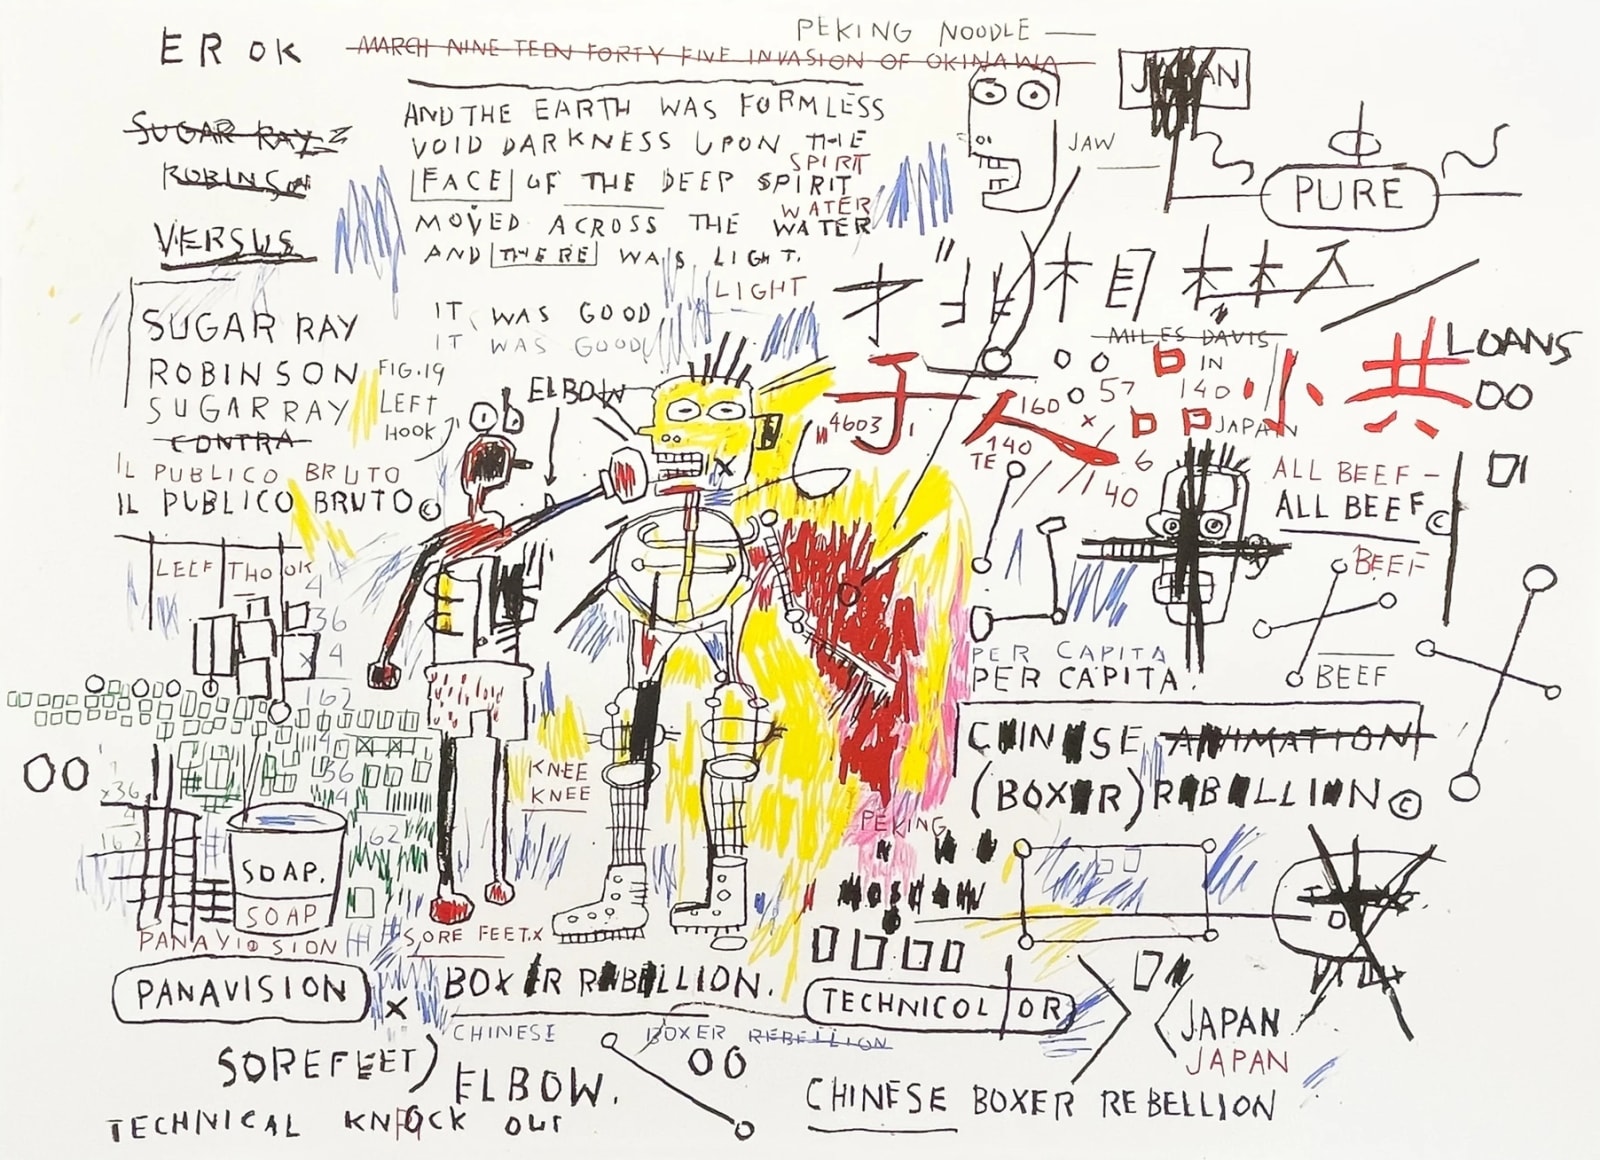 EROK
PEKING NOODLE —
MARCH NINE TEEN FORTY FIVE INVASION OF OKINAWA
JAPAN
SUGAR RAY
ROBINSON
VERSUS
AND THE EARTH WAS FORMLESS
VOID DARKNESS UPON THE
SPIRIT
FACE OF THE DEEP SPIRIT
WATER
MOVED ACROSS THE WATER
AND THERE WAS LIGHT.
LIGHT
IT WAS GOOD
IT WAS GOOD
JAW
PURE
SUGAR RAY
ROBINSON
SUGAR RAY
CONTRA
IL PUBLICO BRUTO
IL PUBLICO BRUTO©
FIG.19
LEFT
HOOK
ELBOW
MILES DAVIS
IN
57
140
160
4603
140
TE
6
140
JAPAN
子人小共
LOANS
OO
ALL BEEF –
ALL BEEF ©
BEEF
BEEF
LEEF THO OK
4
36
x 4
162
PER CAPITA
PER CAPITA.
CHINESE ANIMATION
(BOXER) REBELLION ©
OO
x36
4
162
4
36
4
162
KNEE
KNEE
PEKING
MOSKOW
SOAP.
SOAP
PANAVISION
PANAVISION
X
SORE FEET.X
BOXER REBELLION.
TECHNICOLOR
CHINESE BOXER REBELLION
JAPAN
JAPAN
SOREFEET)
ELBOW.
OO
CHINESE BOXER REBELLION
TECHNICAL KNOCK OUT